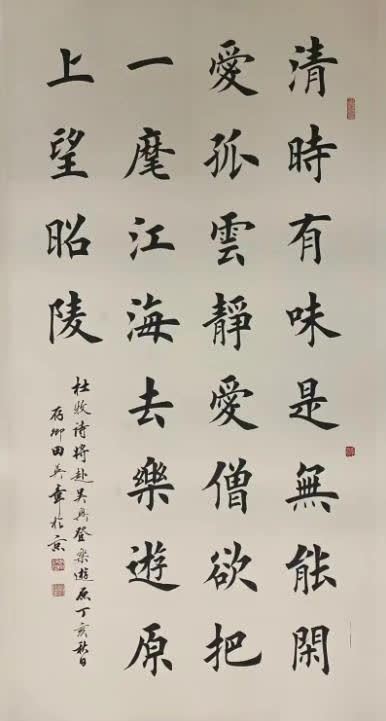 清時有味是無能閑
愛孤雲靜愛僧欲把
一麾江海去樂遊原
上望昭陵
杜牧诗将赴吴兴登楽遊原丁亥秋日
存卿田英章於京